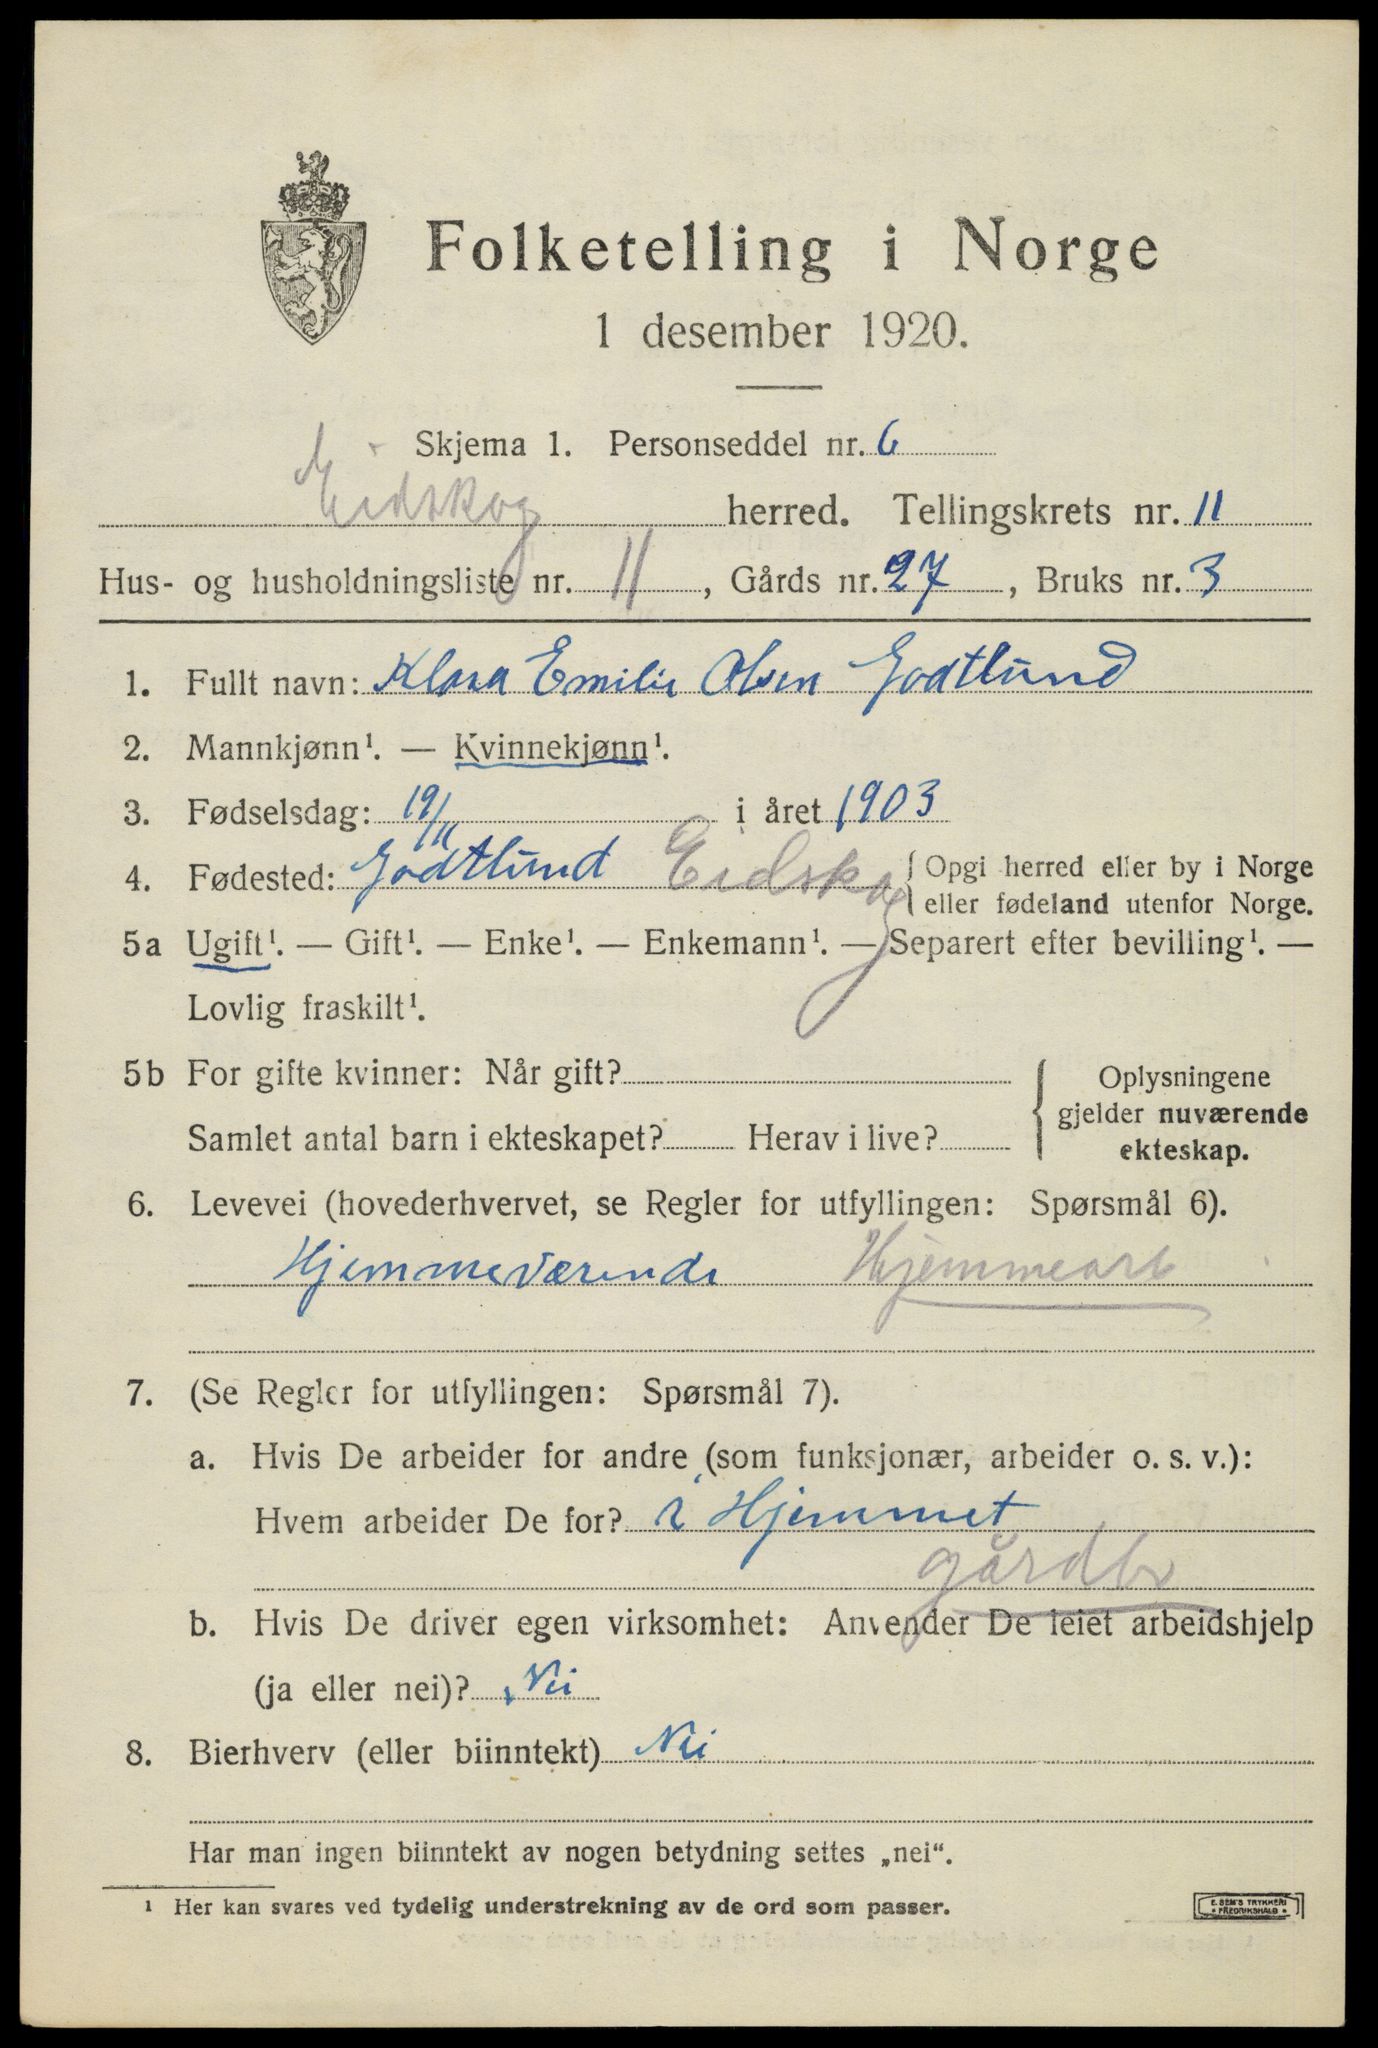 Folketelling i Norge
1 desember 1920.
Skjema 1. Personseddel nr. 6
Eidskog herred. Tellingskrets nr. 11
Hus- og husholdningsliste nr. 11, Gårds nr. 27, Bruks nr. 3
1. Fullt navn: Klara Emilie Olsen Godtlund
2. Mannkjønn¹. — Kvinnekjønn¹.
3. Fødselsdag: 19/11 i året 1903
4. Fødested: Godtlund Eidskog { Opgi herred eller by i Norge
eller fødeland utenfor Norge.
5a Ugift¹. — Gift¹. — Enke¹. — Enkemann¹. — Separert efter bevilling¹. —
Lovlig fraskilt¹.
5b For gifte kvinner: Når gift? { Oplysningene
gjelder nuværende
Samlet antal barn i ekteskapet? Herav i live? ekteskap.
6. Levevei (hovederhvervet, se Regler for utfyllingen: Spørsmål 6).
Hjemmeværende Hjemmearb
7. (Se Regler for utfyllingen: Spørsmål 7).
a. Hvis De arbeider for andre (som funksjonær, arbeider o. s. v.):
Hvem arbeider De for? i Hjemmet
gårdbr
b. Hvis De driver egen virksomhet: Anvender De leiet arbeidshjelp
(ja eller nei)? Nei
8. Bierhverv (eller biinntekt) Nei
Har man ingen biinntekt av nogen betydning settes „nei“.
¹ Her kan svares ved tydelig understrekning av de ord som passer.
E. SEM'S TRYKKERI
FREDRIKSHALD